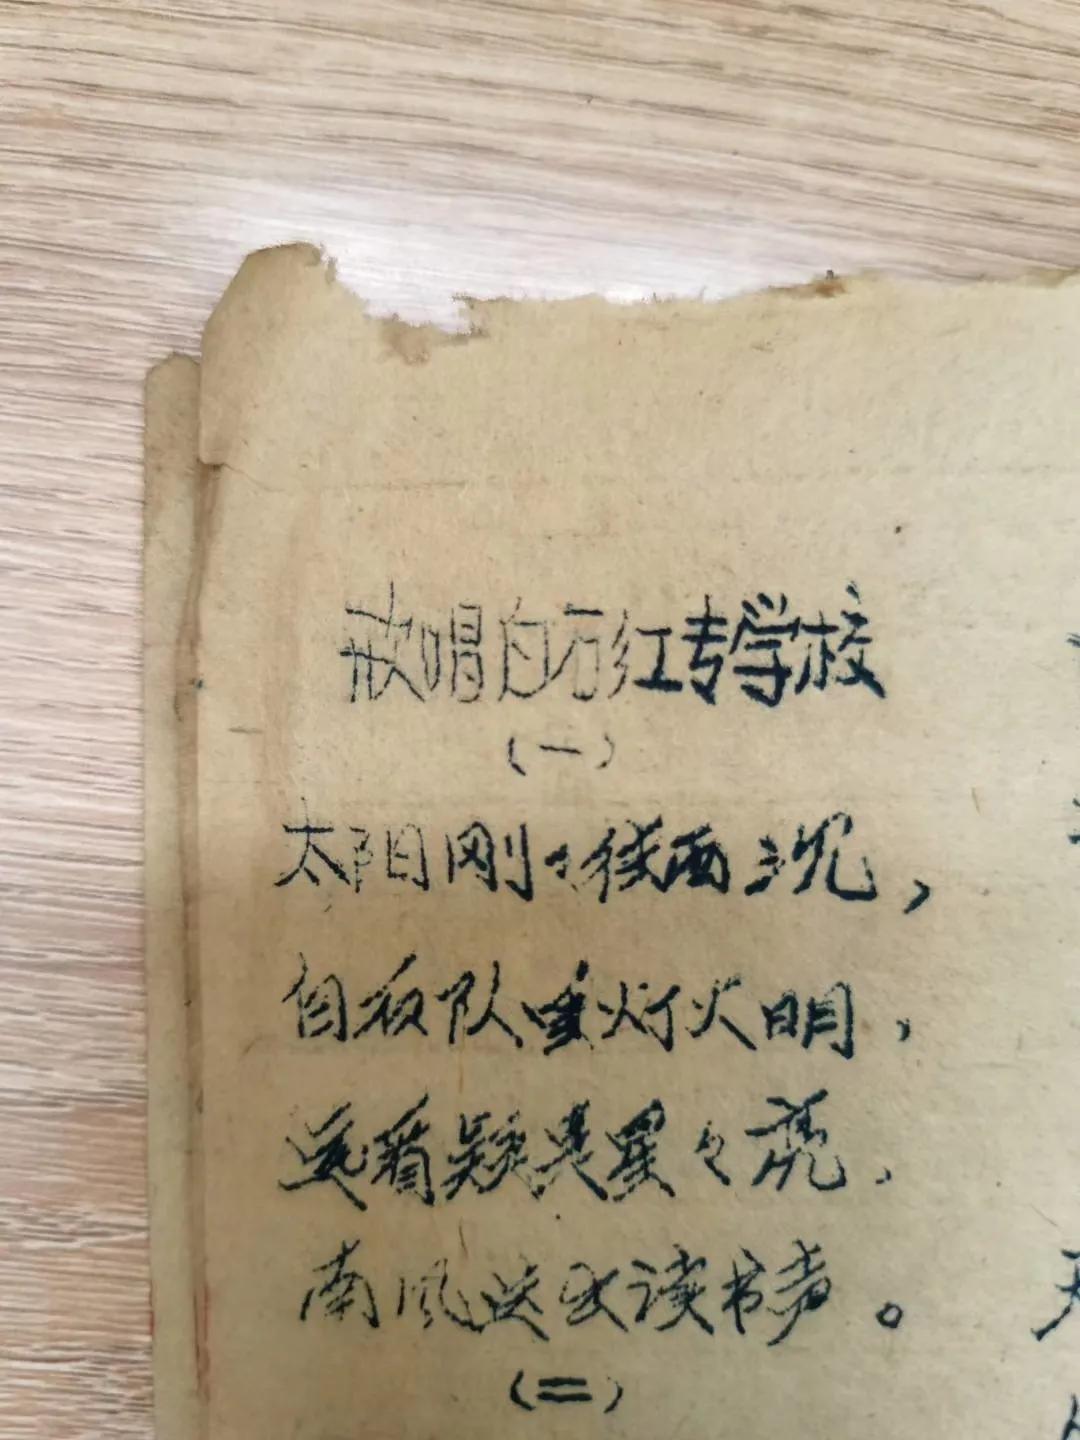 歌唱白万红专学校
（一）
太阳刚々往西沉，
自夜队里灯火明，
远看疑是星々亮，
南风送出读书声。
（二）